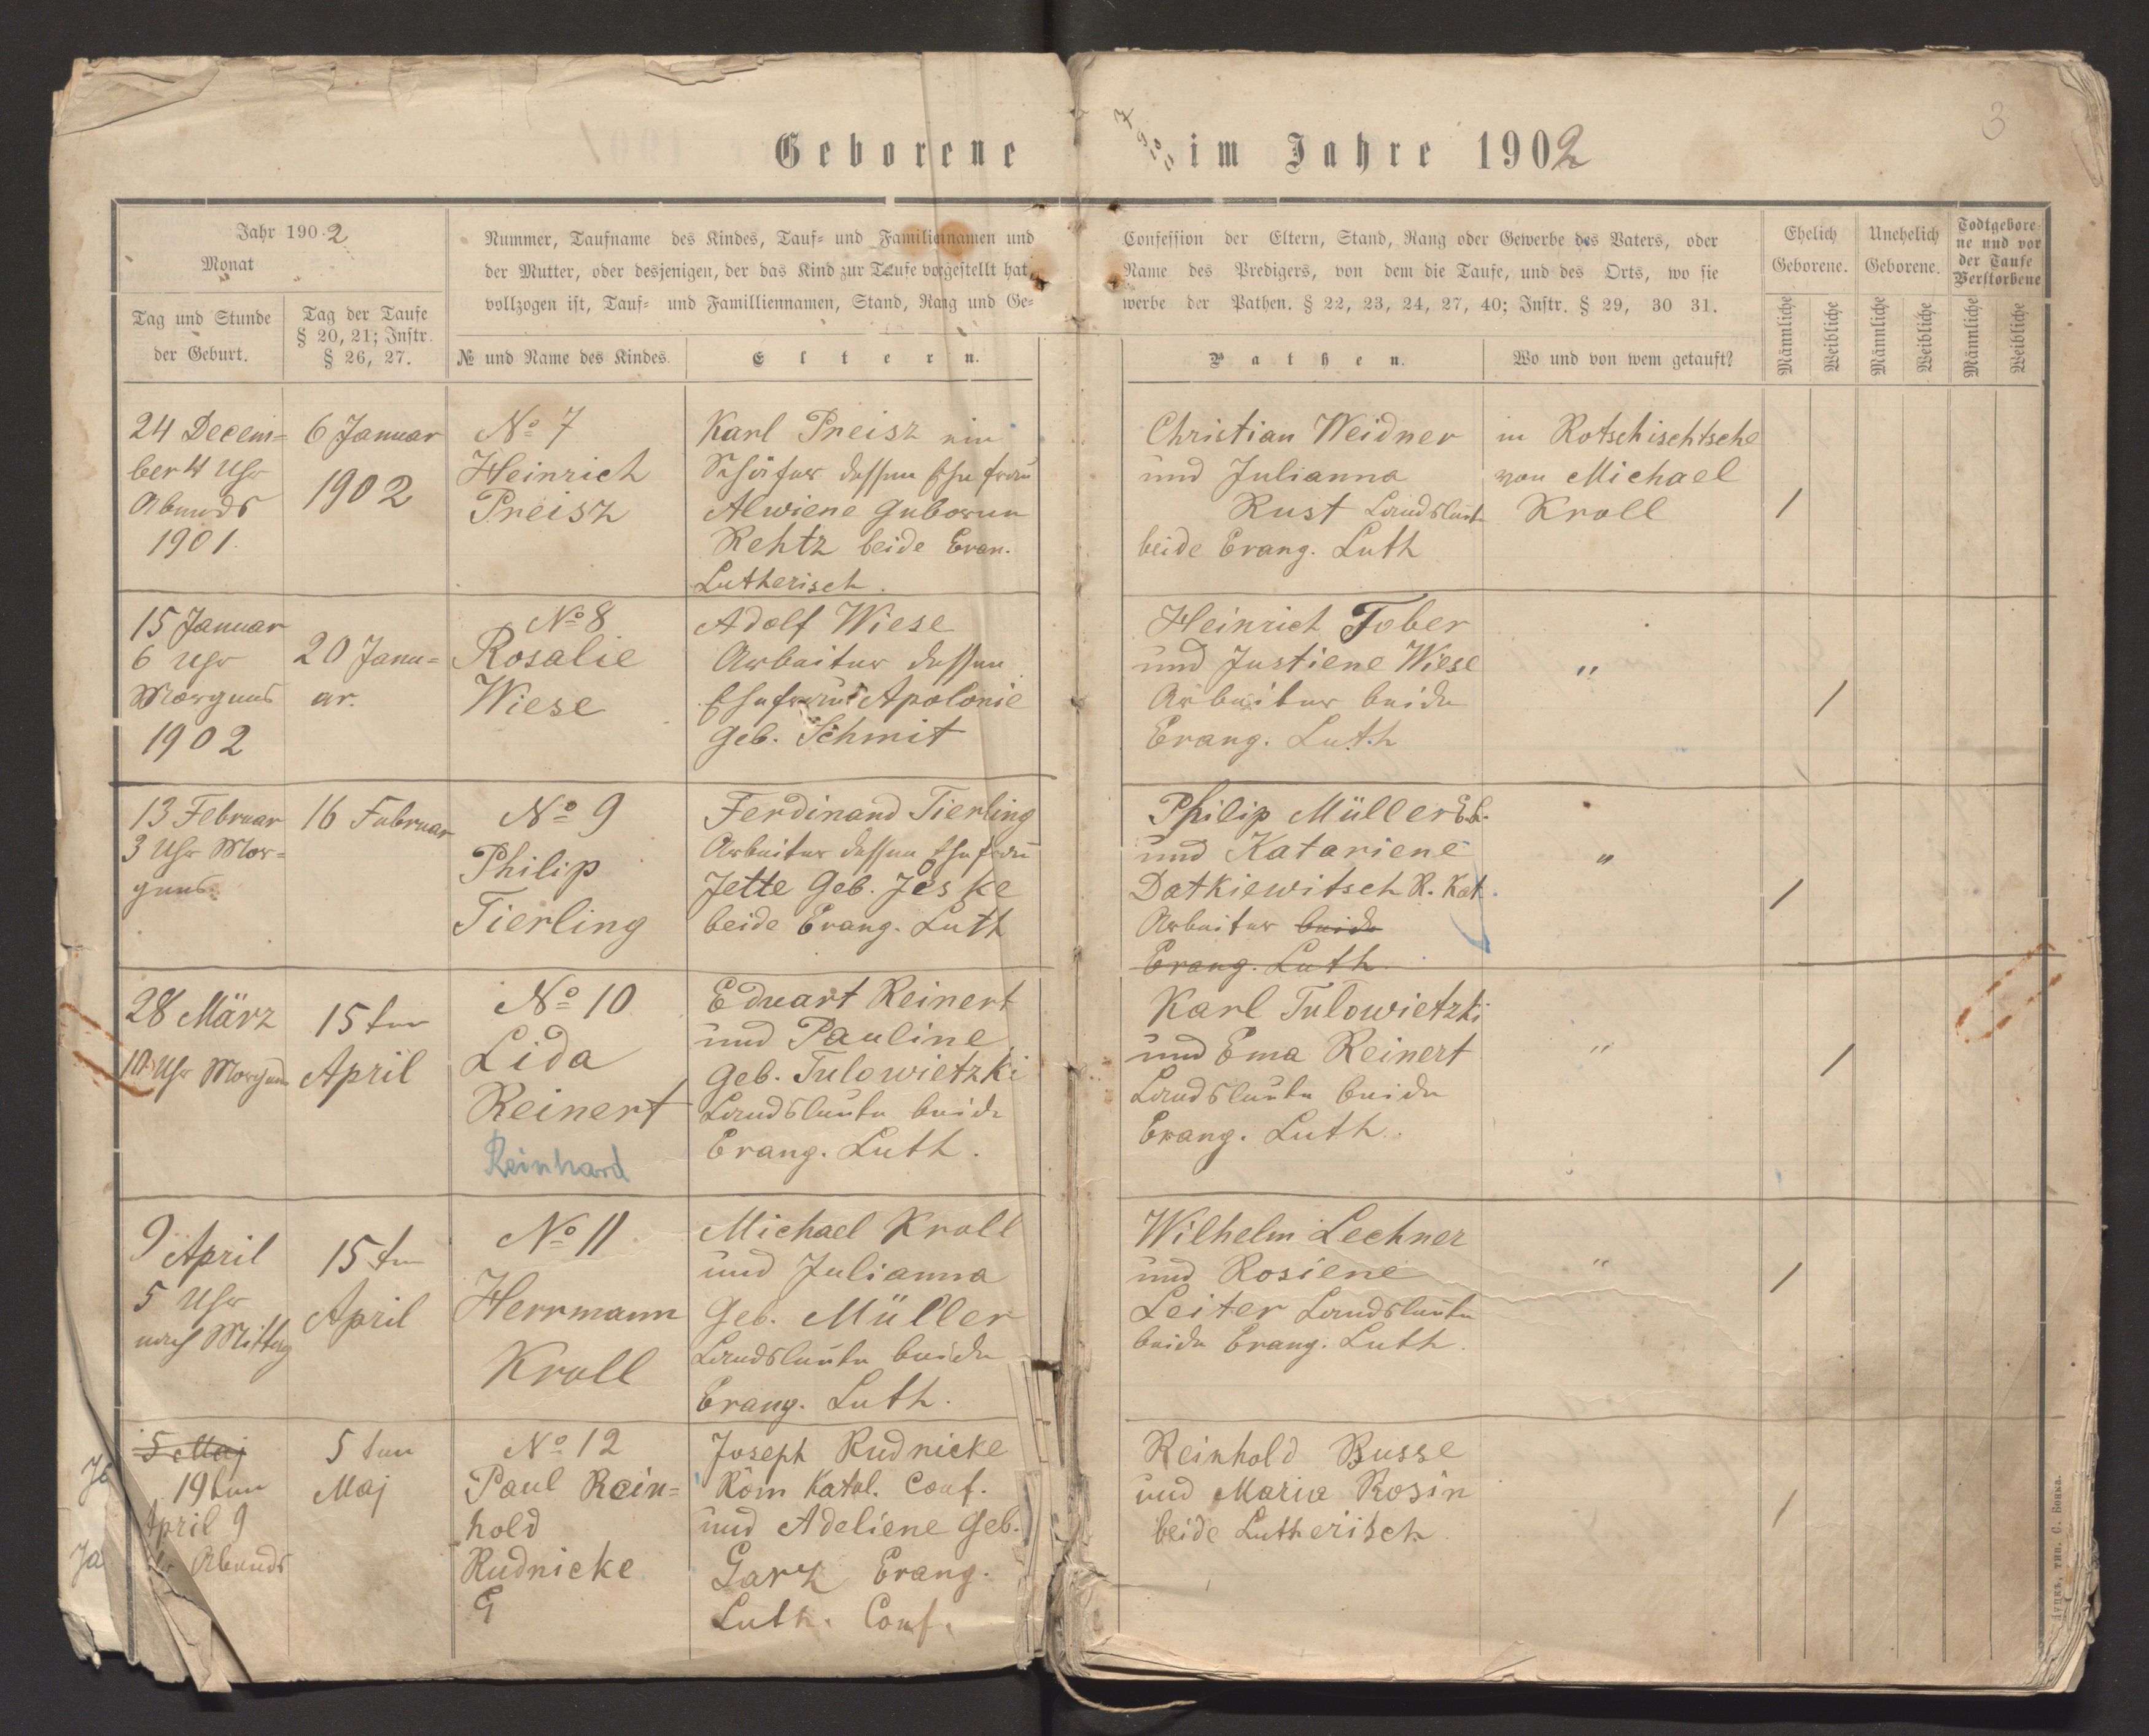 3
Geborene im Jahre 1902
7
9
10
11
Jahr 1902
Monat
Tag und Stunde
der Geburt.
Tag der Taufe
§ 20, 21; Instr.
§ 26, 27.
Nummer, Taufname des Kindes, Tauf= und Familiennamen und
der Mutter, oder desjenigen, der das Kind zur Taufe vorgestellt hat,
vollzogen ist, Tauf= und Familliennamen, Stand, Rang und Ge=
№ und Name des Kindes.
Eltern.
Confession der Eltern, Stand, Rang oder Gewerbe des Vaters, oder
Name des Predigers, von dem die Taufe, und des Orts, wo sie
werbe der Pathen. § 22, 23, 24, 27, 40; Instr. § 29, 30 31.
Pathen.
Wo und von wem getauft?
Ehelich
Geborene.
Unehelich
Geborene.
Todtgebore=
ne und vor
der Taufe
Verstorbene
Männliche
Weibliche
Männliche
Weibliche
Männliche
Weibliche
24 Decem=
ber 4 Uhr
Abends
1901.
6 Januar
1902
№ 7
Heinrich
Preisz
Karl Preisz ein
dessen Ehefrau
Alwiene Geboren
Rehtz beide Evan.
Lutherisch.
Christian Weidner
und Julianna
Rust Landsleut
beide Evang. Luth
in Rotschischtsche
von Michael
Kroll
/
15 Januar
6 Uhr
Morgens
1902
20 Janu=
ar.
№ 8
Rosalie
Wiese
Adolf Wiese
Arbeiter dessen
Ehefrau Apolonie
Geb. Schmit
Heinrich Tober
und Justiene Wiese
Arbeiter beide
Evang. Luth
"
/
13 Februar
3 Uhr Mor=
gens.
16 Februar
№ 9
Philip
Tierling
Ferdinand Tierling
Arbeiter dessen Ehefrau
Jette Geb. Jeske
beide Evang. Luth
Philip Müller
und Katariene
Datkiewitsch R. Kat.
Arbeiter beide
Evang. Luth
"
/
28 März
10 Uhr Morgens
15ten
April
№ 10
Lida
Reinert
Reinhard
Eduart Reinert
und Pauline
Geb. Tulowietzki
Landsleute beide
Evang. Luth.
Karl Tulowietzki
und Ema Reinert
Landsleute beide
Evang. Luth.
"
/
9 April
5 Uhr
nach Mittag
15ten
April
№ 11
Herrmann
Kroll
Michael Kroll
und Julianna
Geb. Müller
Landsleute beide
Evang. Luth.
Wilhelm Lechner
und Rosiene
Leiter Landsleute
beide Evang. Luth.
"
/
5 Maj
19ten
April 9
Abends
5ten
Maj
№ 12
Paul Rein=
hold
Rudnicke
G
Joseph Rudnicke
Röm Katol. Conf.
und Adeliene Geb.
Garz Evang.
Luth. Conf.
Reinhold Busse
und Maria Rosin
beide Lutherisch
/
Ja
Луцкъ, тип. С. Бонка.